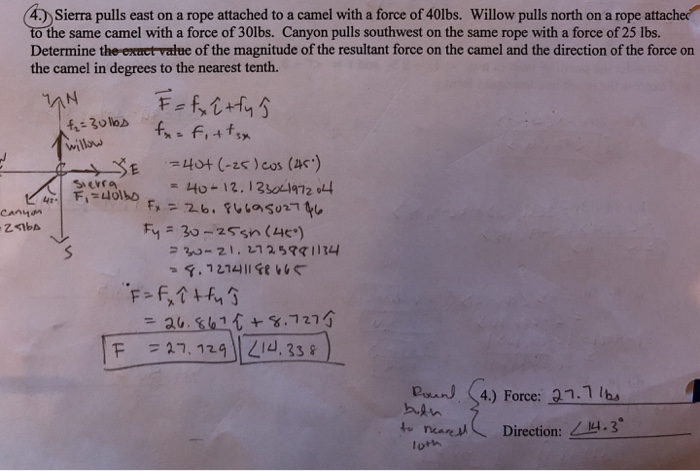 4.) Sierra pulls east on a rope attached to a camel with a force of 40lbs. Willow pulls north on a rope attached
to the same camel with a force of 30lbs. Canyon pulls southwest on the same rope with a force of 25 lbs.
Determine the exact value of the magnitude of the resultant force on the camel and the direction of the force on
the camel in degrees to the nearest tenth.
N
f₂=30lbs
willow
E
Sierra
F₁=40lbs
45°
Canyon
25lbs
S
F = fx î + fy ĵ
fx = F₁ + f₃x
= 40+ (-25) cos (45°)
= 40-12.1330497204
Fx = 26.8669502796
Fy = 30-25sn (45°)
= 30-21.2725881134
= 8.7274118
F = fx î + fy ĵ
= 26.867 î + 8.727 ĵ
F = 27.729 ∠14.338
Round
both
to nearest
10th
4.) Force: 27.7 lbs
Direction: ∠14.3°